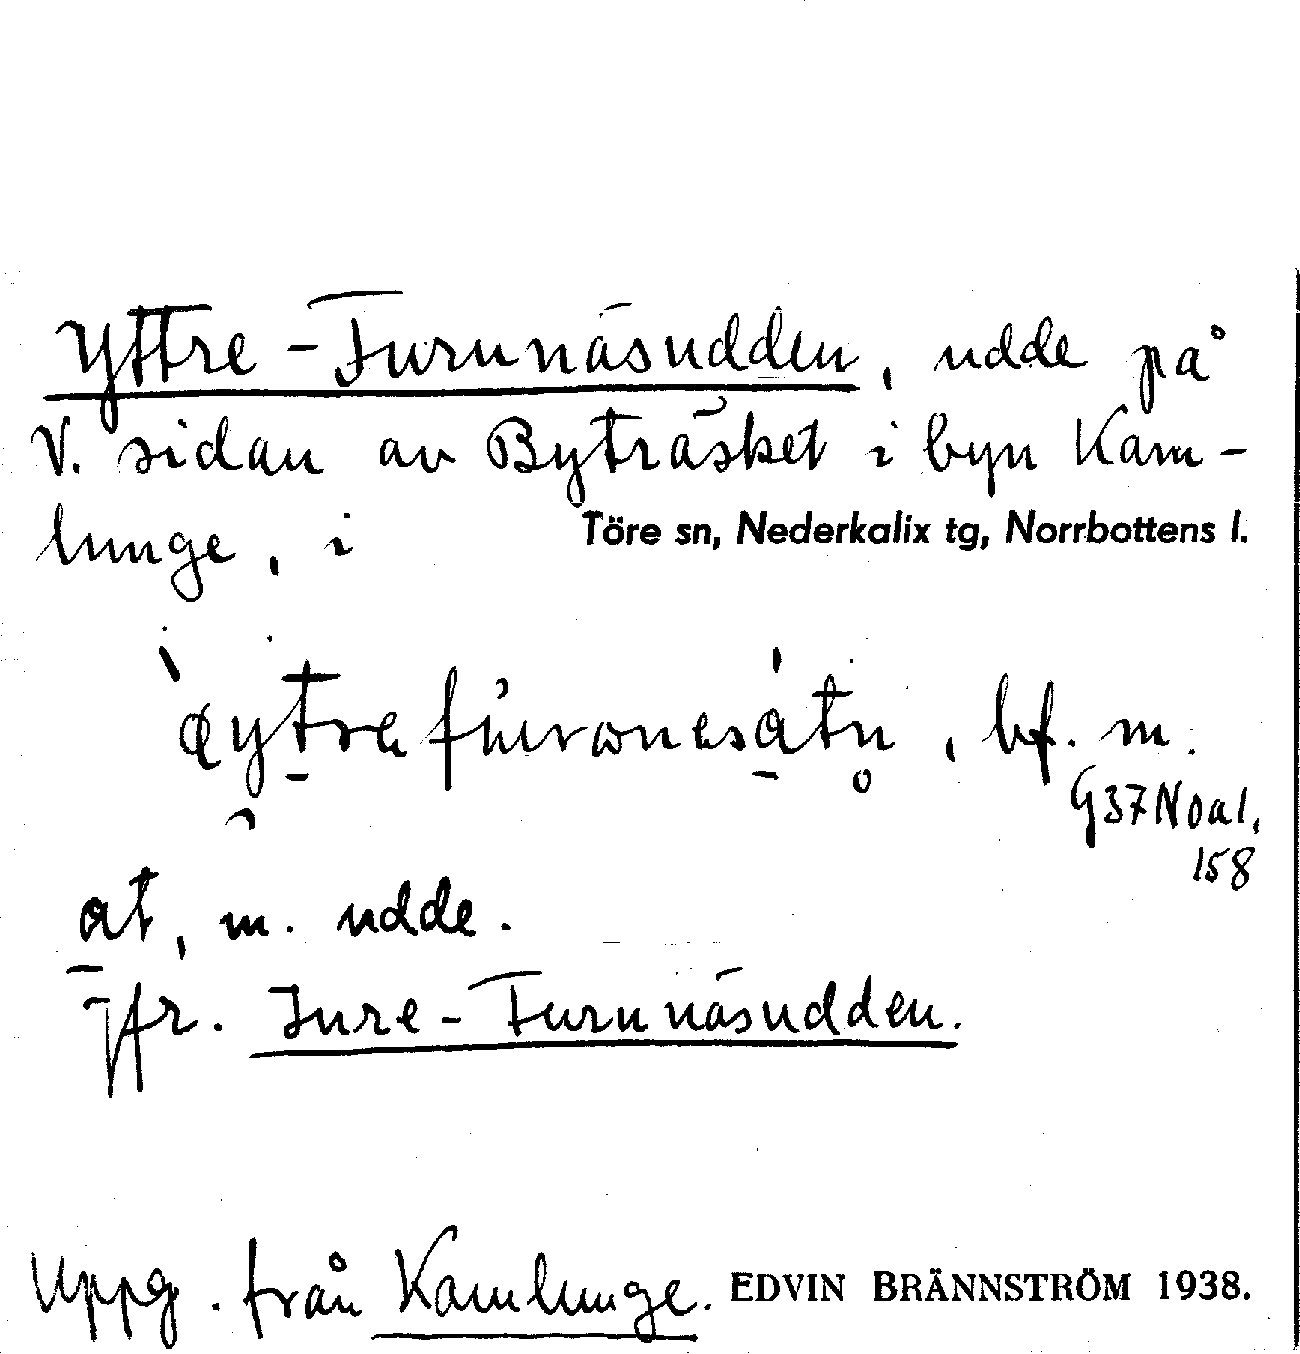 Yttre-Furunäsudden, udde på
V. sidan av Byträsket i byn Kam-
lunge, i Töre sn, Nederkalix tg, Norrbottens l.
bf. m.
G37Noa1,
158
at, m. udde.
Jfr. Inre-Furunäsudden.
Uppg. från Kamlunge. EDVIN BRÄNNSTRÖM 1938.